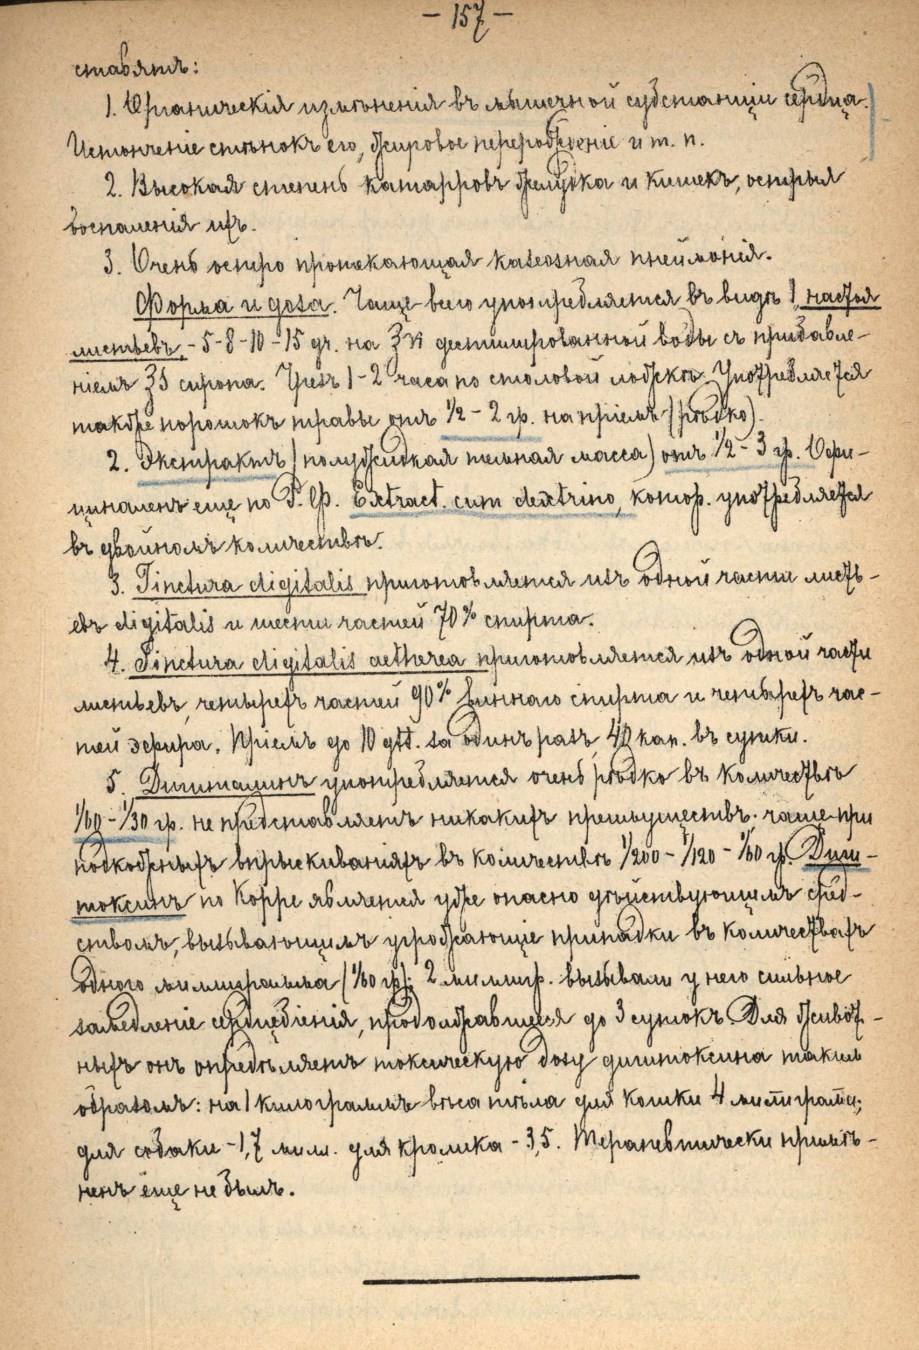 — 157 —
ставятъ:
1. Органическія измѣненія въ мышечной субстанціи сердца.
Истонченіе стѣнокъ его, жировое перерожденіе и т. п.
2. Высокая степень катарровъ желудка и кишекъ, острыя
воспаленія ихъ.
3. Очень остро протекающая казеозная пнеймонія.
Форма и доза. Чаще всего употребляется въ видѣ 1, настоя
листьевъ, – 5 – 8 – 10 – 15 гр. на ℥vi дестиллированной воды съ прибавле-
ніемъ ℥s сиропа. Чрезъ 1 – 2 часа по столовой ложкѣ. Употребляется
также порошокъ травы отъ 1/2 – 2 гр. на пріемъ (рѣдко).
2. Экстрактъ (полужидкая темная масса) отъ 1/2 – 3 гр. Офи-
циналенъ еще по Р. Ф. Extract. cum dextrino, котор. употребляется
въ двойномъ количествѣ.
3. Tinctura digitalis приготовляется изъ одной части листь-
евъ digitalis и шести частей 70% спирта.
4. Tinctura digitalis aetherea приготовляется изъ одной части
листьевъ, четырехъ частей 90% виннаго спирта и четырехъ час-
тей эфира. Пріемъ до 10 gtt. за одинъ разъ, 40 кап. въ сутки.
5. Дигиталинъ употребляется очень рѣдко въ количествѣ
1/60 – 1/30 гр. не представляетъ никакихъ преимуществъ. чаще при
подкожныхъ впрыскиваніяхъ въ количествѣ 1/200 – 1/120 – 1/60 гр. Диги-
токсинъ по Корре является уже опасно дѣйствующимъ сред-
ствомъ, вызывающимъ угрожающіе припадки въ количествахъ
одного миллиграмма (1/60 гр); 2 миллигр. вызывали у него сильное
замедленіе сердцебіенія, продолжавшееся до 3 сутокъ. Для живот-
ныхъ онъ опредѣляетъ токсическую дозу дигитоксина такимъ
образомъ: на 1 килограммъ вѣса тѣла для кошки 4 миллиграм.;
для собаки – 1,7 мил. для кролика – 3,5. Терапевтически примѣ-
ненъ еще не былъ.